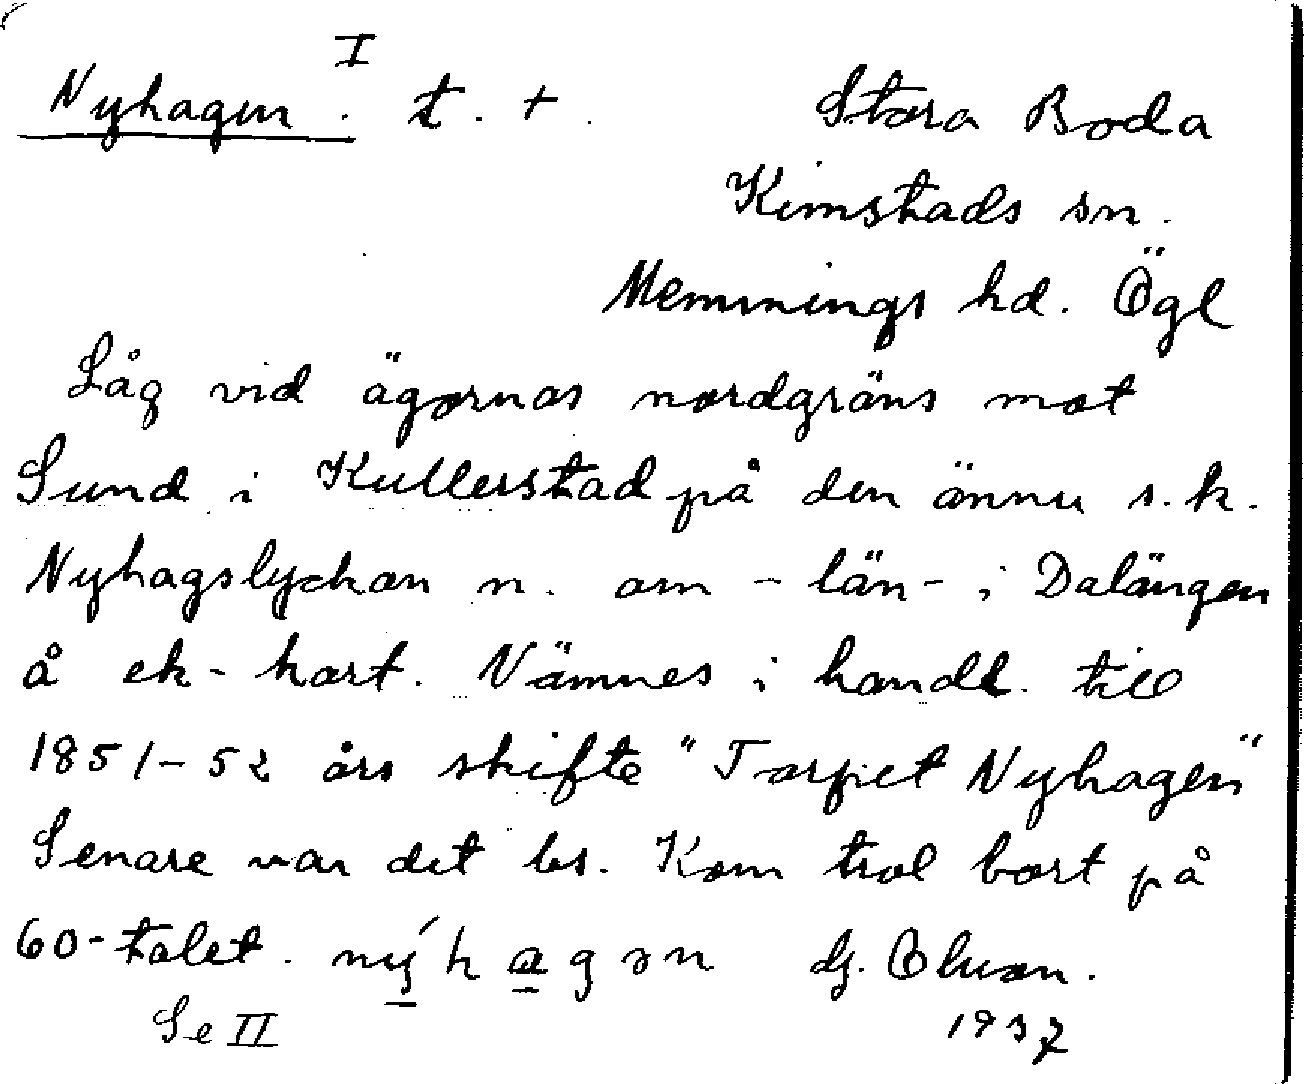 I
Nyhagen. t. +. Stora Boda
Kimstads sn.
Memmings hd. Ögl
Låg vid ägornas nordgräns mot
Sund i Kullerstad på den ännu s.k.
Nyhagslyckan n. om - län - i Dalängen
å ek-kart. Nämnes i handl. till
1851-52 års skifte "Torpet Nyhagen"
Senare var det bs. Kom trol bort på
60-talet. nýhagən Hj. Olsson.
Se II 1937